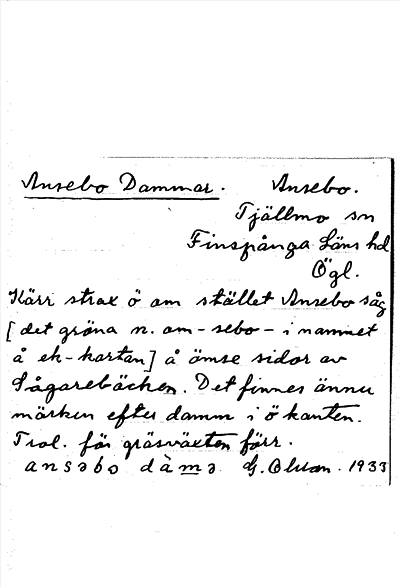 Ansebo Dammar. Ansebo.
Tjällmo sn
Finspånga Läns hd
Ögl.
Kärr strax ö om stället Ansebo såg
[det gröna n. om -sebo- i namnet
å ek-kartan] å ömse sidor av
Sågarebäcken. Det finnes ännu
märken efter damm i ö kanten.
Trol. för gräsväxten förr.
ansəbo dàmə G. Olson. 1933